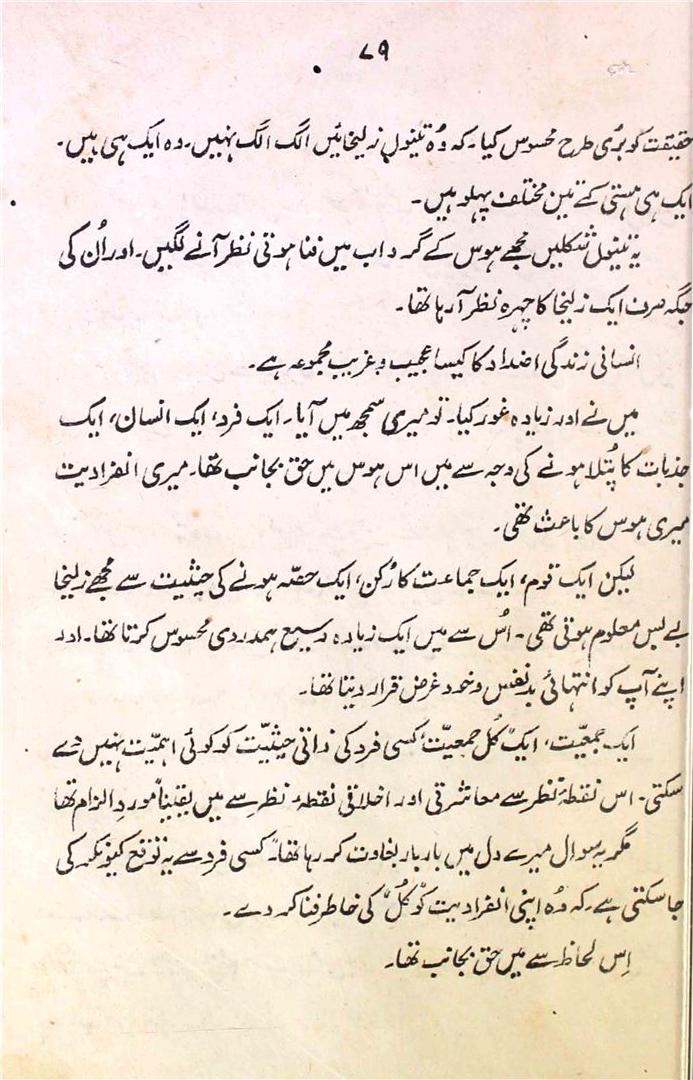 ۷۹
حقیقت کو بُری طرح محسوس کیا۔ کہ وُہ تینوں زلیخائیں الگ الگ نہیں۔ وہ ایک ہی ہیں۔
ایک ہی ہستی کے تین مختلف پہلو ہیں۔
یہ تینوں شکلیں مجھے ہوس کے گرداب میں فنا ہوتی نظر آنے لگیں۔ اور اُن کی
جگہ صرف ایک زلیخا کا چہرہ نظر آ رہا تھا۔
انسانی زندگی اضداد کا کیسا عجیب و غریب مجموعہ ہے۔
میں نے اور زیادہ غور کیا۔ تو میری سمجھ میں آیا۔ ایک فرد، ایک انسان، ایک
جذبات کا پُتلا ہونے کی وجہ سے میں اس ہوس میں حق بجانب تھا۔ میری انفرادیت
میری ہوس کا باعث تھی۔
لیکن ایک قوم، ایک جماعت کا رُکن، ایک حصّہ ہونے کی حیثیت سے مجھے زلیخا
بے بس معلوم ہوتی تھی۔ اُس سے میں ایک زیادہ وسیع ہمدردی محسوس کرتا تھا۔ اور
اپنے آپ کو انتہائی بدنفس و خود غرض قرار دیتا تھا۔
ایک جمعیّت، ایک کُل جمعیّت، کسی فرد کی ذاتی حیثیّت کو کوئی اہمیّت نہیں دے
سکتی۔ اس نقطۂ نظر سے معاشرتی اور اخلاقی نقطۂ نظر سے میں یقیناً موردِ الزام تھا
مگر یہ سوال میرے دل میں بار بار بغاوت کر رہا تھا۔ کسی فرد سے یہ توقع کیونکر کی
جا سکتی ہے۔ کہ وُہ اپنی انفرادیت کو "کُل" کی خاطر فنا کر دے۔
اِس لحاظ سے میں حق بجانب تھا۔